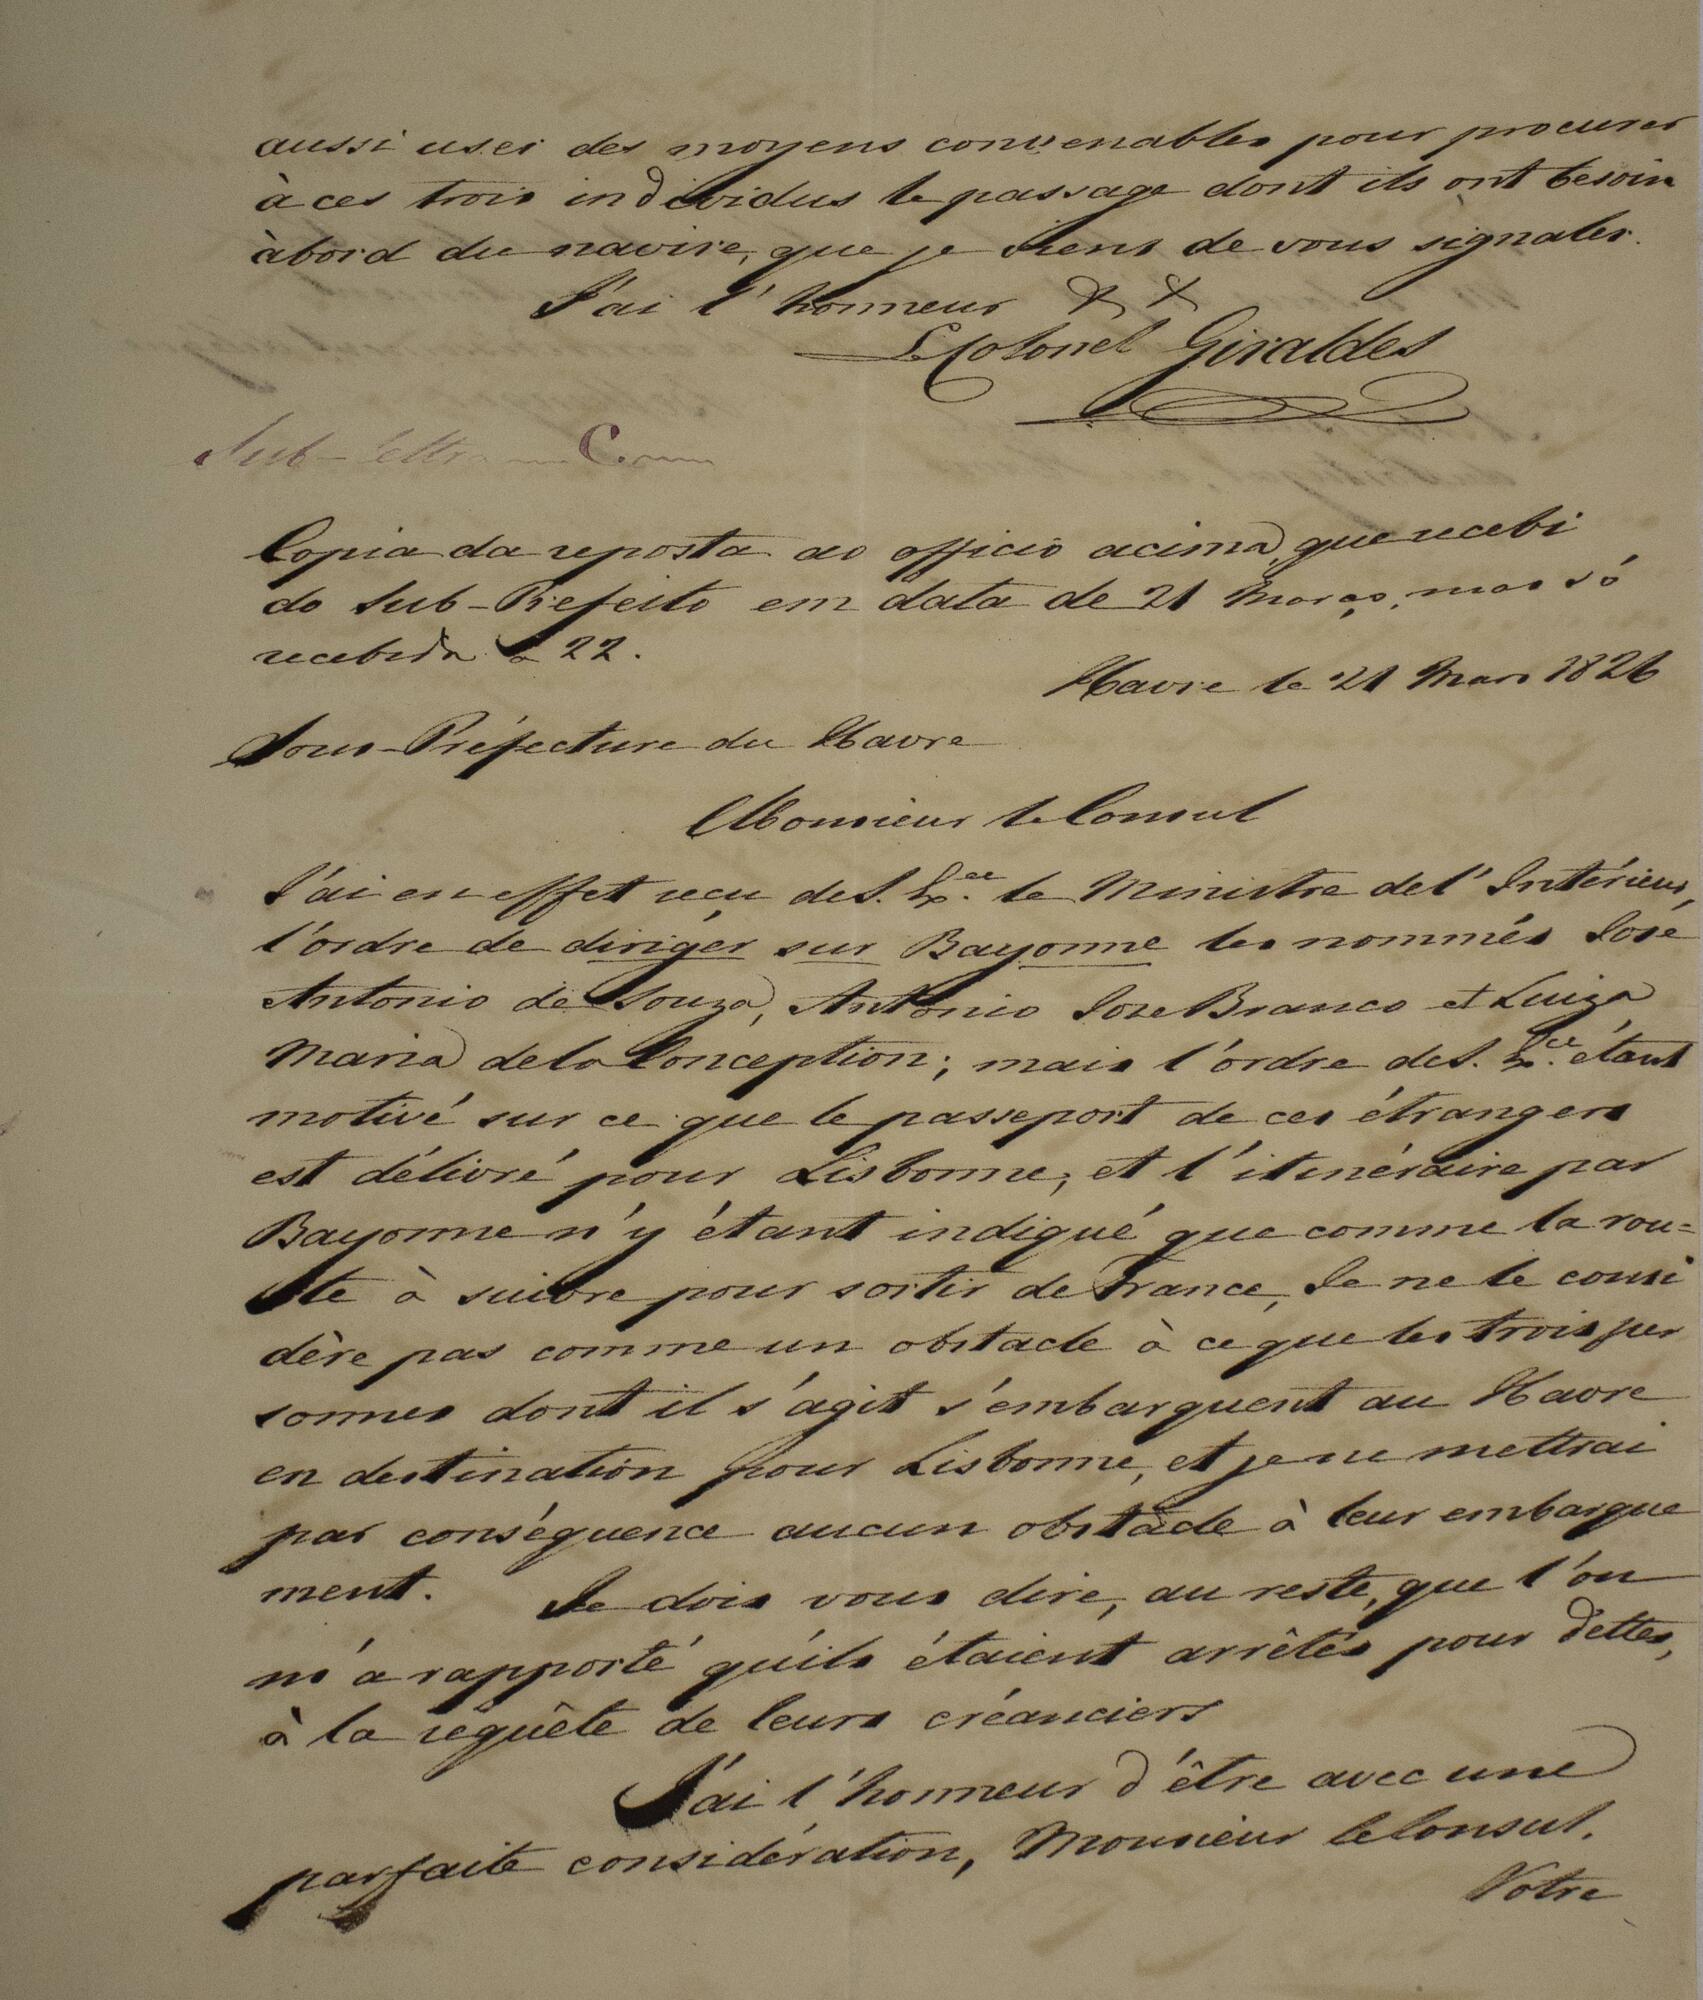 aussi user des moyens convenables pour procurer
à ces trois individus le passage dont ils ont besoin
àbord du navire, que je viens de vous signaler.
J'ai l'honneur & &
Le Colonel Giraldes
Sub-lettra C.
Copia da reposta ao officio acima, que recebi
do Sub-Prefeito em data de 21 Março, mas só
recebida a 22.
Havre le 21 Mars 1826
Sous-Préfecture du Havre
Monsieur le Consul
J'ai en effet reçu de S. Ex.ce le Ministre de l'Intérieur,
l'ordre de diriger sur Bayonne les nommés José
Antonio de Souza, Antonio Jose Branco et Luiza
Maria de la Conception; mais l'ordre de S. Ex.ce étant
motivé sur ce que le passeport de ces étrangers
est délivré pour Lisbonne, et l'itinéraire par
Bayonne n'y étant indiqué que comme la rou=
te à suivre pour sortir de France, Je ne le consi
dère pas comme un obstacle à ce que les trois per
sonnes dont il s'agit s'embarquent au Havre
en destination pour Lisbonne, et je ne mettrai
par conséquence aucun obstacle à leur embarque
ment. Je dois vous dire, au reste, que l'on
m'a rapporté qu'ils étaient arrêtés pour dettes,
à la requête de leurs créanciers
J'ai l'honneur d'être avec une
parfaite considération, Monsieur le Consul.
Votre